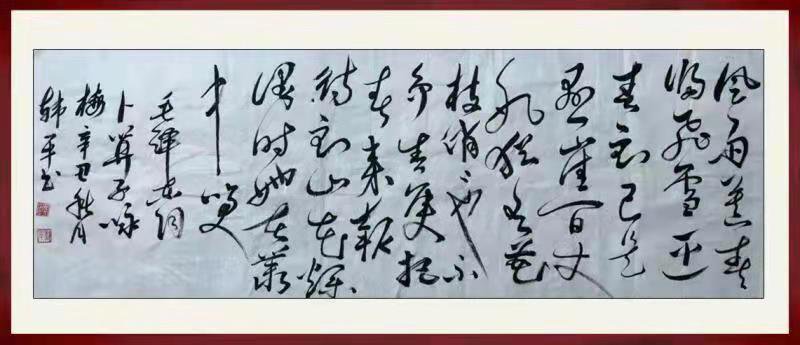 风雨送春
归飞雪迎
春到已是
悬崖百丈
冰犹有花
枝俏〻也不
争春只把
春来报
待到山花烂
漫时她在丛
中笑
毛泽东词
卜算子咏
梅辛丑秋月
韩平书